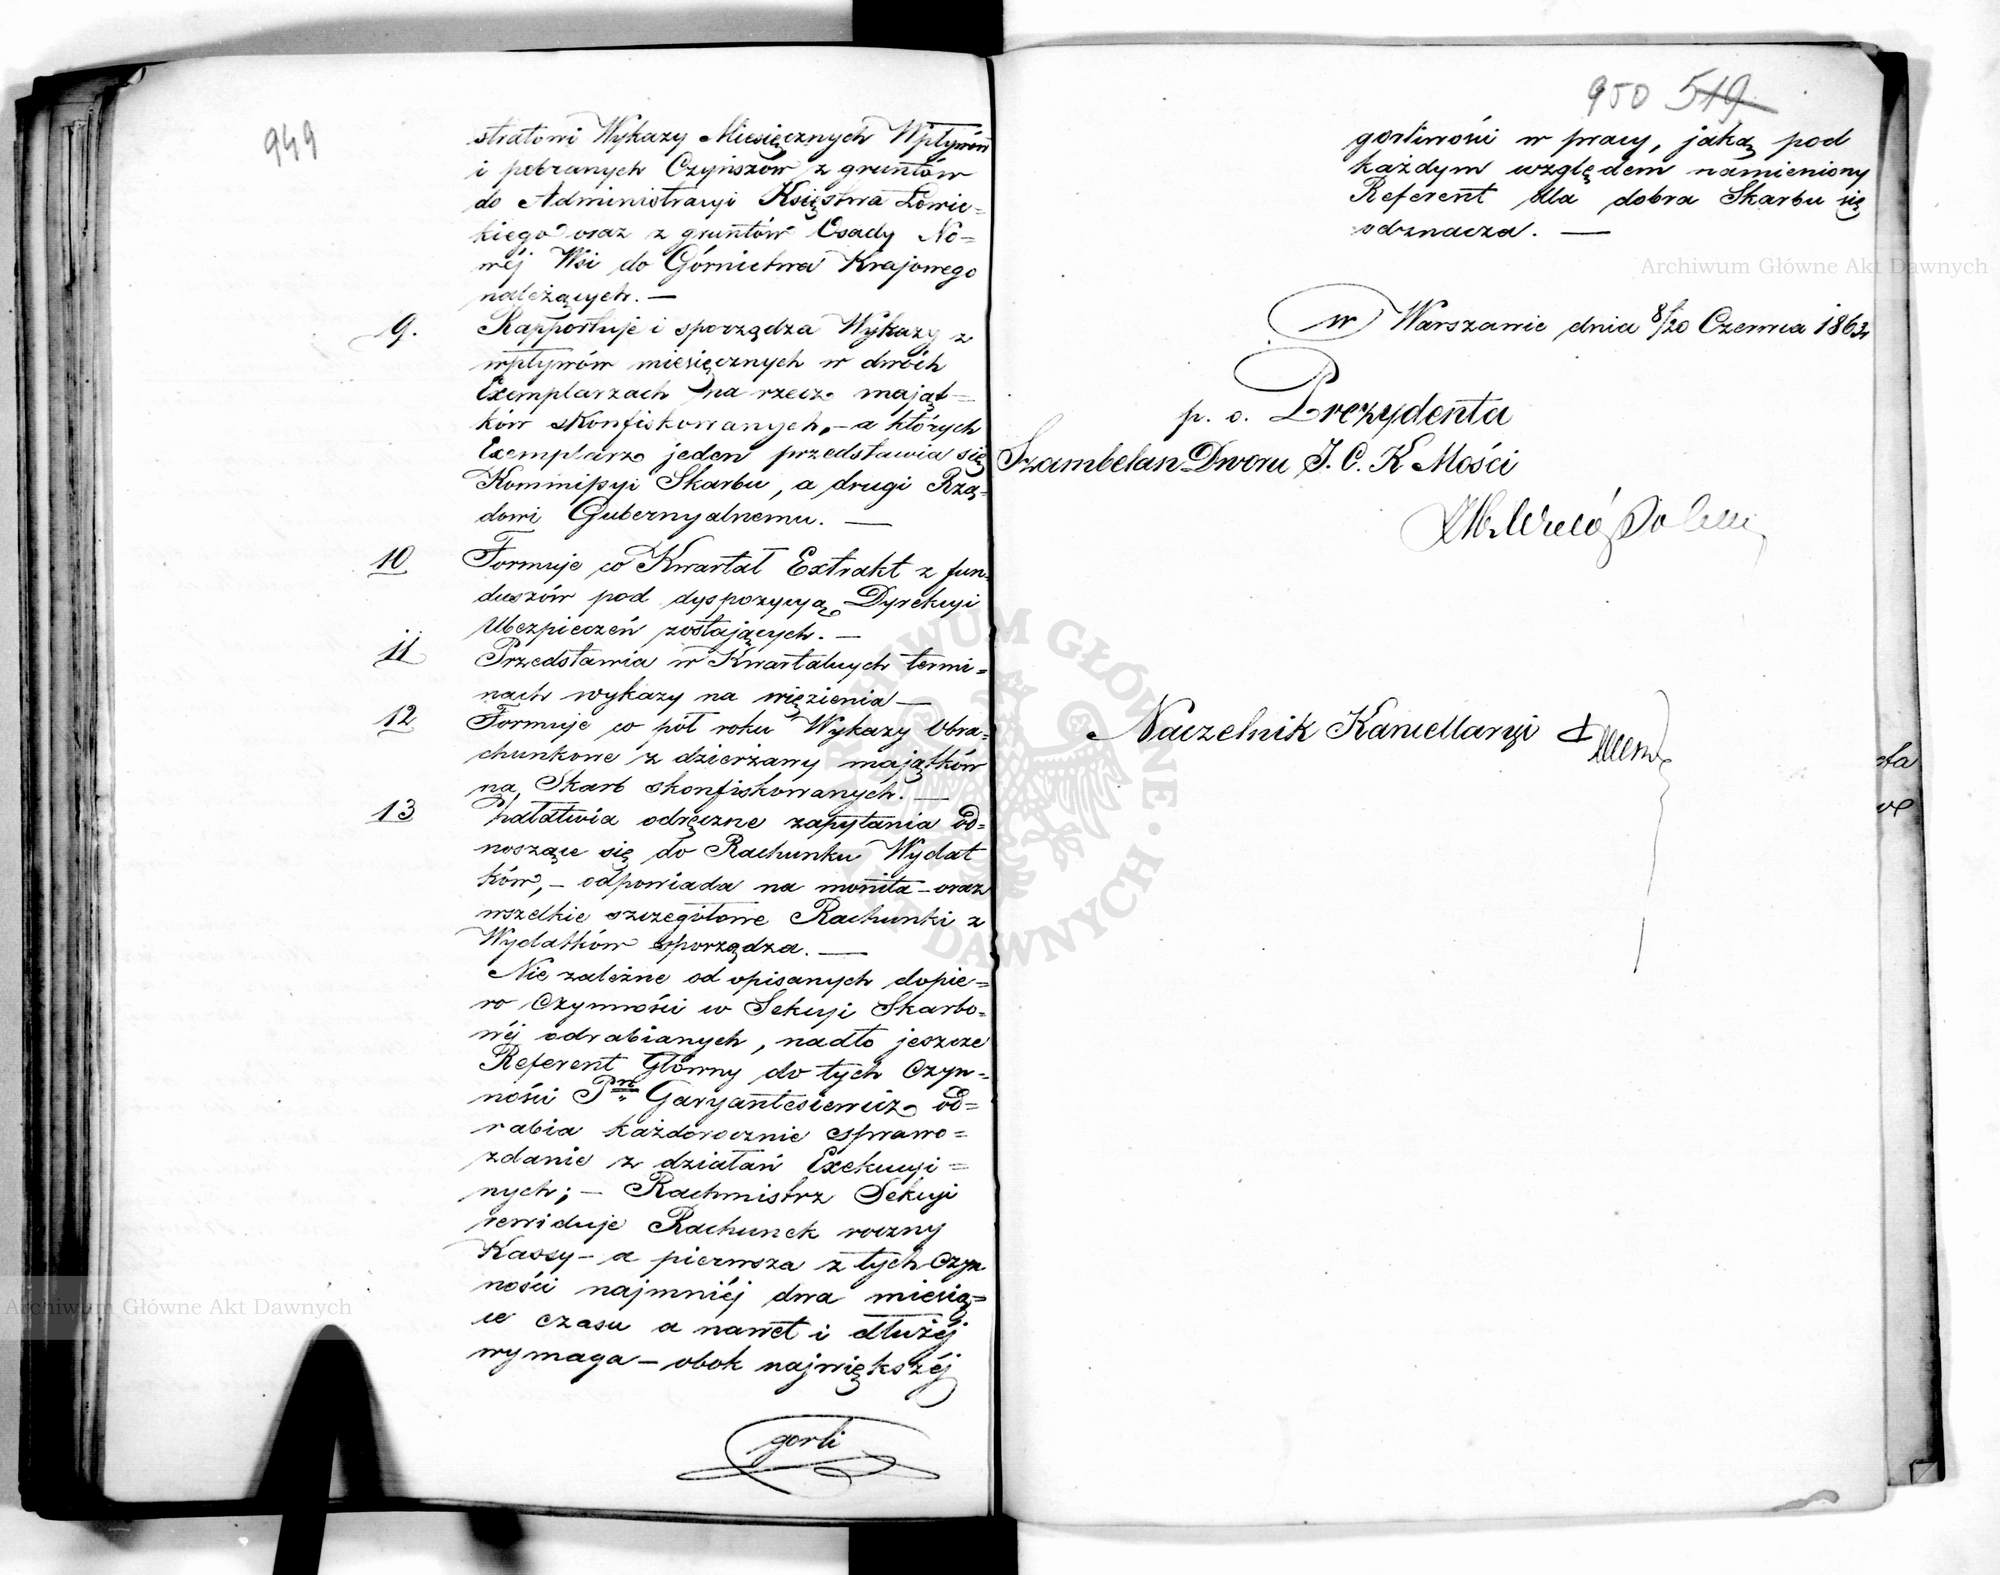 949
stratowi Wykazy Miesięcznych Wpływów
i pobranych Czynszów z gruntów
do Administracyi Księstwa Łowic=
kiego oraz z gruntów Osady No=
wéj Wsi do Górnictwa Krajowego
należących. —
9. Rapportuje i sporządza Wykazy z
wpływów miesięcznych w dwóch
Exemplarzach na rzecz mająt=
ków skonfiskowanych, – a których
Exemplarz jeden przedstawia się
Kommissyi Skarbu, a drugi Rzą=
dowi Gubernyalnemu. —
10 Formuje co Kwartał Extrakt z fun=
duszów pod dyspozycyą Dyrekcyi
Ubezpieczeń zostających. —
11 Przedstawia w Kwartalnych termi=
nach wykazy na więzienia —
12 Formuje co pół roku Wykazy Obra=
chunkowe z dzierżawy majątków
na Skarb skonfiskowanych. —
13 Załatwia odręczne zapytania od=
noszące się do Rachunku Wydat
ków, – odpowiada na monita – oraz
wszelkie szczegółowe Rachunki z
Wydatków sporządza. —
Nie zależne od opisanych dopie=
ro Czynności w Sekcyi Skarbo=
wéj odrabianych, nadto jeszcze
Referent Główny do tych Czyn=
ności Pn Garyantesiewicz od=
rabia każdorocznie sprawo=
zdanie z działań Exekucyi=
nych; – Rachmistrz Sekcyi
rewiduje Rachunek roczny
Kassy – a pierwsza z tych Czyn
ności najmniéj dwa miesią=
ce czasu a nawet i dłużéj
wymaga – obok największéj
gorli
950 519
gorliwości w pracy, jaką pod
każdym względem namieniony
Referent dla dobra Skarbu się
odznacza. —
w Warszawie dnia 8/20 Czerwca 1863r
p. o. Prezydenta
Szambelan Dworu J. C. K Mości
Naczelnik Kancellaryi
Archiwum Główne Akt Dawnych
Archiwum Główne Akt Dawnych
ARCHIWUM GŁÓWNE AKT DAWNYCH